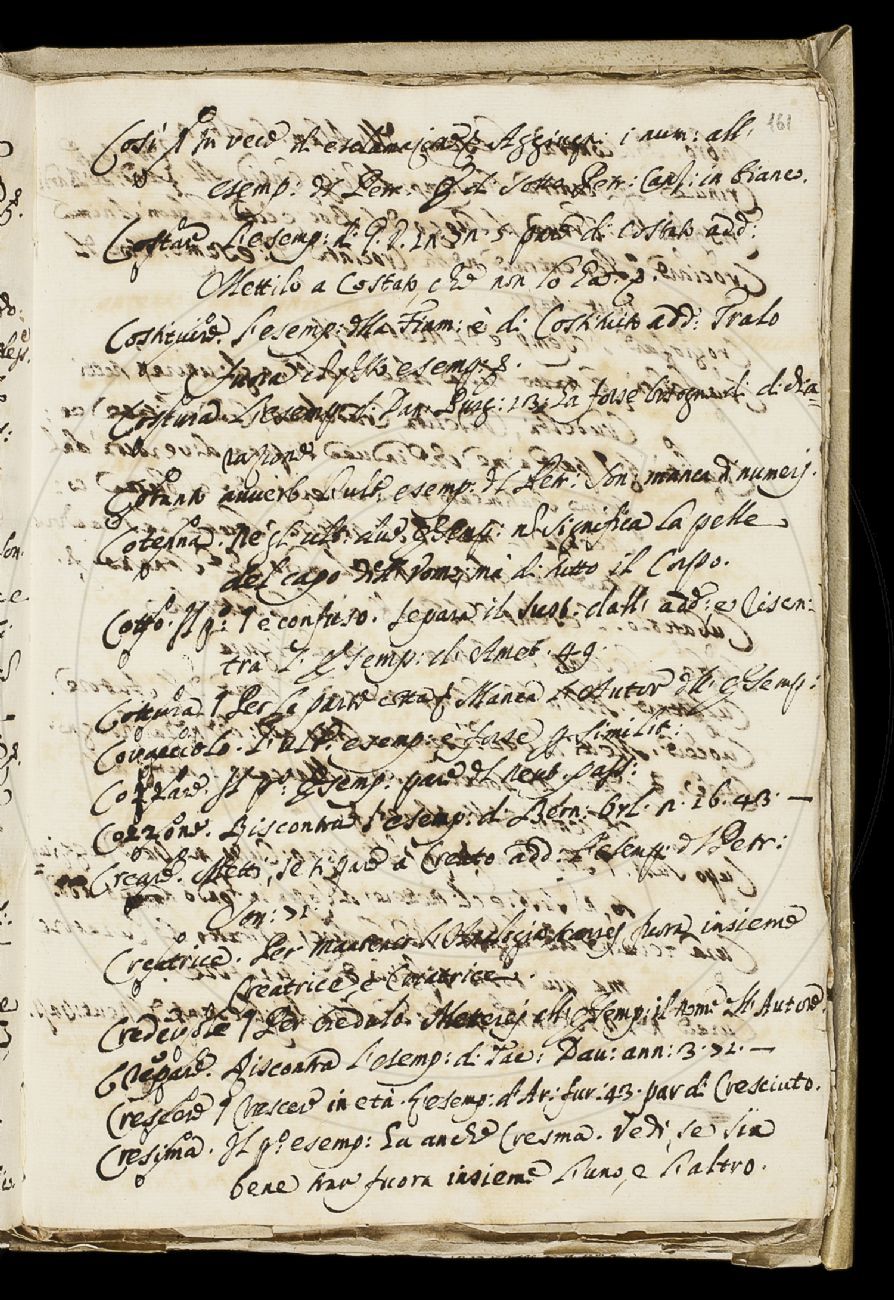 161
Così ¶ In vece di esclamazione Aggiugn: i num: all'
esemp: del Petr. sotto Petr: Canz: in bianco.
Costare L'esemp: di G. V. di costato add:
Mettilo a Costato, che non lo ha.
Costituire. L'esemp: della Fiam: è di Costituito add: Tralo
fuora esemp:
Costura L'esemp: di Dan. Purg: 13: La forse bisogno di dichia=
razione
Cotanto auuerb. L'ult: esemp: del Petr: Son: manca di numeri.
Cotenna. Negl'ult: due esemp: n significa la pelle
del capo dell'uomo, ma di tutto il Corpo.
Cotto. Il p.º ¶ è confuso. Separa il sust: dall' add: e riscon:
tra l'esemp: di Amet. 49.
Cottura ¶ Per la parte cotta Manca l'Autor dell'esemp:
Covacciolo. L'ult: esemp: è forse p similit:
Cozzare. Il p.º esemp: pare del neut. pass:
Cozzone. Riscontra l'esemp: di Bern: Orl. p. 16. 43. —
Creare. Metti, se ti pare a Creato add: L'esemp: del Petr:
Son: 71
Creatrice. Per fuora insieme
Creatrice, e Criatrice.
Credevole ¶ Per credulo. Mettesi all'esemp: il nome dell'Autore.
Crepare. Riscontra l'esemp: di Tac: Dav: ann: 3. 71. —
Crescere ¶ Crescer in età. L'esemp: d'Ar: fur: 43. par di Cresciuto.
Cresima. Il p.º esemp: ha anche Cresma. Vedi, se sia
bene trar fuora insieme l'uno, e l'altro.